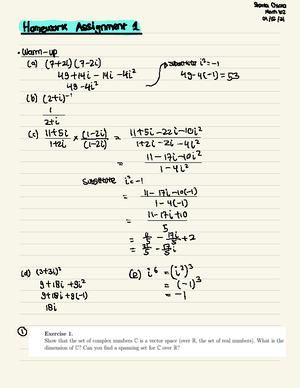 Math 412
Homework Assignment 1
• Warm-up
(a) (7+2i)(7-2i)
49+14i-14i-4i²
49-4i²
substitute i²=-1
49-4(-1)=53
(b) (2+i)⁻¹
1
2+i
(c) 11+5i × (1-2i) = 11+5i-22i-10i²
1+2i (1-2i) 1+2i-2i-4i²
= 11-17i-10i²
1-4i²
Substitute i²=-1
= 11-17i-10(-1)
1-4(-1)
= 11-17i+10
5
= 11/5 - 17i/5 + 2
= 21/5 - 17/5 i
(d) (3+3i)²
9+18i+9i²
9+18i+9(-1)
18i
(e) i⁶ = (i²)³
= (-1)³
= -1
① Exercise 1.
Show that the set of complex numbers ℂ is a vector space (over ℝ, the set of real numbers). What is the
dimension of ℂ? Can you find a spanning set for ℂ over ℝ?